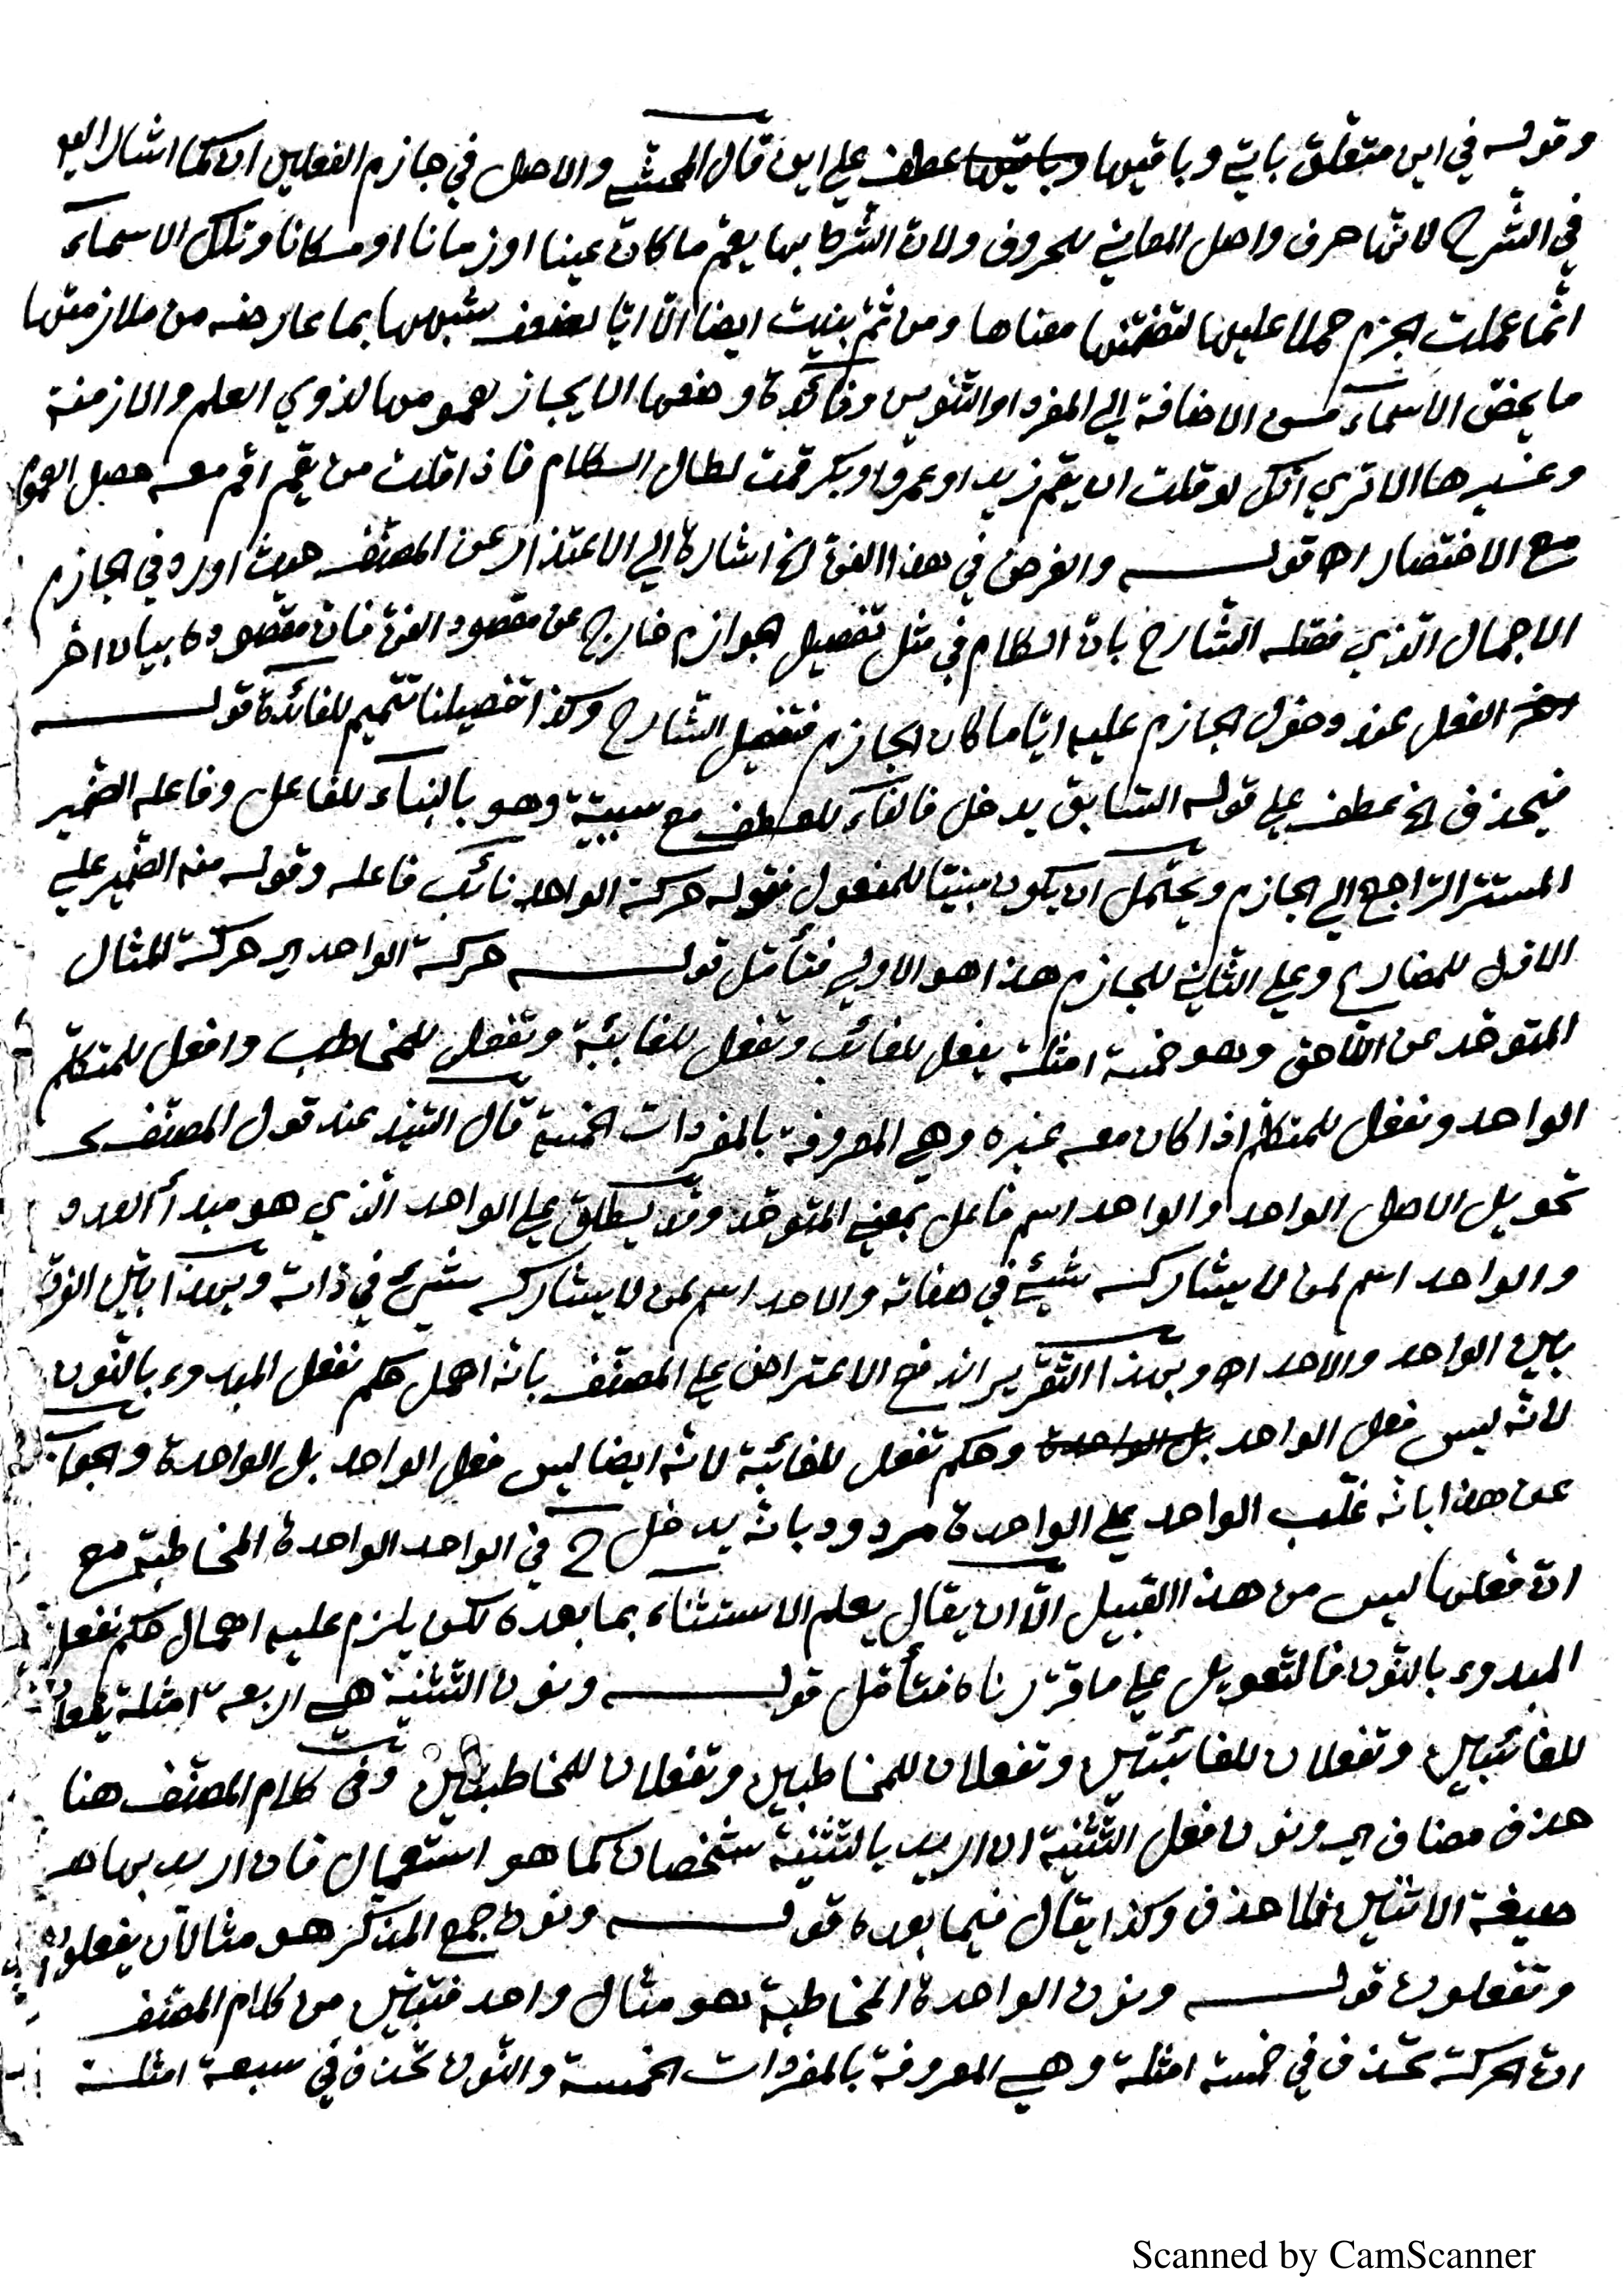 وقوله في اين متعلق بابي وباقيها وباقيها عطف علي اين قال المحشي والاصل في جازم الفعلين ان كما اشار اليه
في الشرح لانها حرف واصل المعاني للحروف ولان الشرط بها يعم ما كان عينا او زمانا او مكانا وتلك الاسماء
انما عملت الجزم حملا عليها لتضمنها معناها ومن ثم بنيت ايضا الا ايا لضعف شبهها بما عارضه من ملازمتها
ما يخص الاسماء من الاضافة الي المفرد او التنوين وفائدة وضعها الايجاز لعمومها لذوي العلم والازمنة
وغيرها الا تري انك لو قلت ان يقم زيد او عمرو او بكر قمت لطال الكلام فاذا قلت من يقم اقم معه حصل العموم
مع الاختصار اه قوله والغرض في هذا الفن الخ اشارة الي الاعتذار عن المصنف حيث اورد في الجازم
الاجمال الذي فصله الشارح بان الكلام في مثل تفصيل الجوازم خارج عن مقصود الفن فان مقصوده بيان اخر
اخر الفعل عند دخول الجازم عليه ايا ما كان الجازم فتفصيل الشارح وكذا تفصيلنا تتميم للفائدة قوله
فيحذف الخ عطف علي قوله السابق يدخل فالفاء للعطف مع سببية وهو بالبناء للفاعل وفاعله الضمير
المستتر الراجع الي الجازم ويحتمل ان يكون مبنيا للمفعول فقوله حركة الواحد نائب فاعله وقوله منه الضمير علي
الاول للمضارع وعلي الثاني للجازم هذا هو الاولي فتأمل قوله حركة الواحد اي حركة المثال
المتوحد عن اللاحق وهو خمسة امثلة يفعل للغائب وتفعل للغايبة وتفعل للمخاطب وافعل للمتكلم
الواحد ونفعل للمتكلم اذا كان معه غيره وهي المعروفة بالمفردات الخمسة قال السيد عند قول المصنف
تحويل الاصل الواحد والواحد اسم فاعل بمعني المتوحد وقد يطلق علي الواحد الذي هو مبدأ العدد
والواحد اسم لمن لا يشاركه شيئ في صفاته والاحد اسم لمن لا يشاركه شيئ في ذاته وبهذا تبين الفرق
بين الواحد والاحد اه وبهذا التقرير اندفع الاعتراض علي المصنف بانه اهمل حكم نفعل المبدوء بالنون
لانه ليس فعل الواحد بل الواحدة وحكم تفعل للغائبة لانه ايضا ليس فعل الواحد بل الواحدة والجواب
عن هذا بانه غلب الواحد علي الواحدة مردود بانه يدخل ح في الواحد الواحدة المخاطبة مع
ان فعلها ليس من هذا القبيل الا ان يقال يعلم الاستثناء بما بعده لكن يلزم عليه اهمال حكم نفعل
المبدوء بالنون فالتعويل علي ما قررناه فتأمل قوله ونون التثنية هي اربعة امثلة يفعلان
للغائبين وتفعلان للغائبتين وتفعلان للمخاطبين وتفعلان للمخاطبتين وفي كلام المصنف هنا
حذف مضاف اي ونون فعل التثنية ان اريد بالتثنية شخصان كما هو استعمال فان اريد بها
صيغة الاثنين فلا حذف وكذا يقال فيما بعده قوله ونون جمع المذكر هو مثالان يفعلون
وتفعلون قوله ونون الواحدة المخاطبة هو مثال واحد فتبين من كلام المصنف
ان الحركة تحذف في خمسة امثلة وهي المعروفة بالمفردات الخمسة والنون تحذف في سبعة امثلة
Scanned by CamScanner